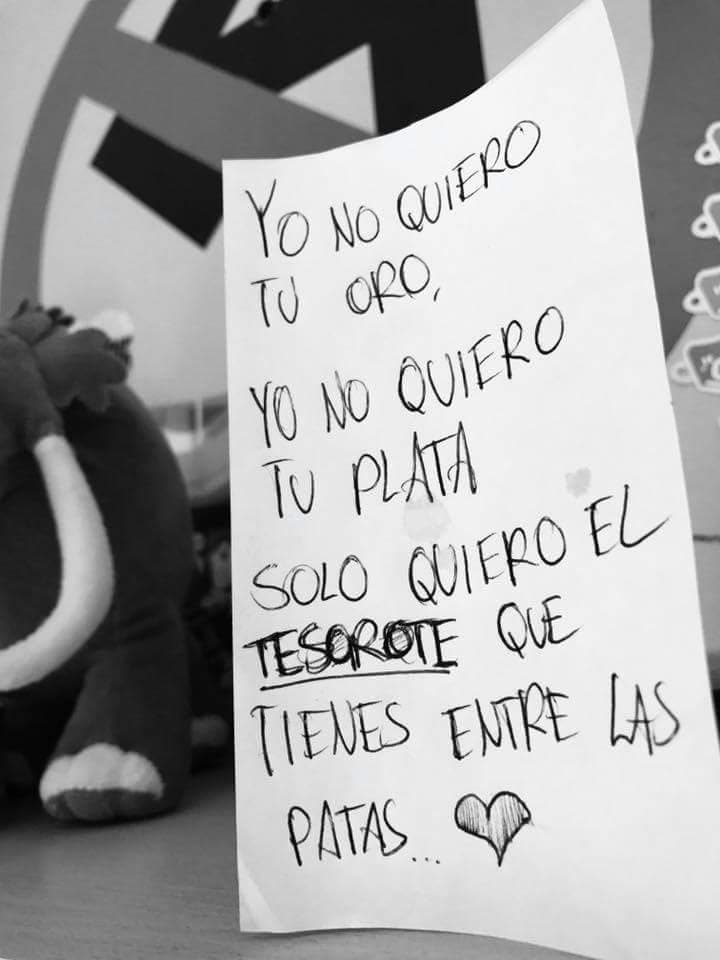 YO NO QUIERO
TU ORO,
YO NO QUIERO
TU PLATA
SOLO QUIERO EL
TESOROTE QUE
TIENES ENTRE LAS
PATAS...